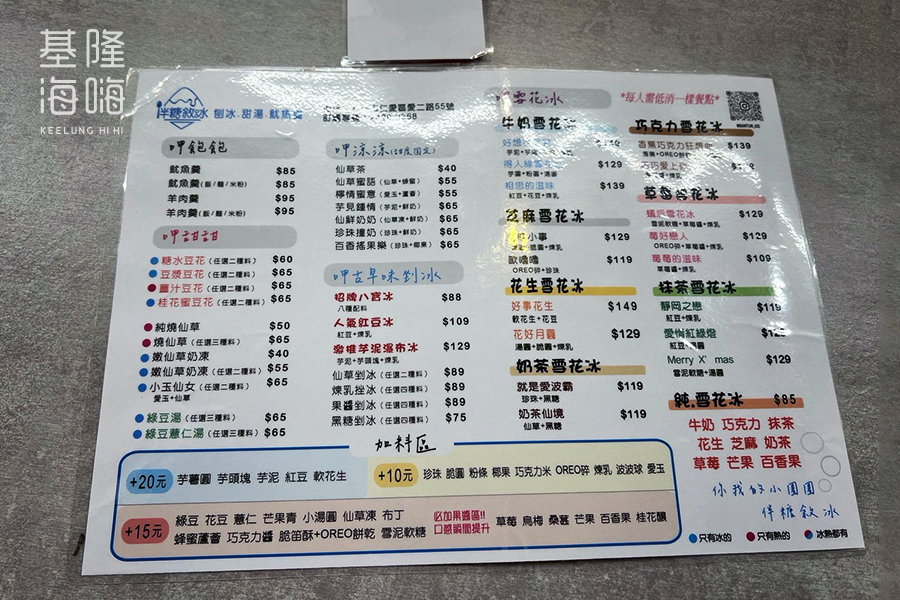 基隆
海嗨
KEELUNG HI HI
伴糖敘冰
刨冰.甜湯.魷魚羹
仁愛區愛二路55號
呷飽飽
魷魚羹 $85
魷魚羹(飯/麵/米粉) $85
羊肉羹 $95
羊肉羹(飯/麵/米粉) $95
呷甜甜
糖水豆花(任選二種料) $60
豆漿豆花(任選二種料) $65
薑汁豆花(任選二種料) $65
桂花蜜豆花(任選二種料) $65
純燒仙草 $50
燒仙草(任選三種料) $65
嫩仙草奶凍 $40
嫩仙草奶凍(任選二種料) $55
小玉仙女(任選二種料) $65
愛玉+仙草
綠豆湯(任選三種料) $65
綠豆薏仁湯(任選三種料) $65
呷涼涼(甜度固定)
仙草茶 $40
仙草蜜語(仙草+蜂蜜) $55
檸情蜜意(愛玉+蘆薈) $55
芋見鍾情(芋泥+鮮奶) $65
仙鮮奶奶(仙草凍+鮮奶) $65
珍珠撞奶(珍珠+鮮奶) $65
百香搖果樂(珍珠+椰果) $65
呷古早味剉冰
招牌八寶冰 $88
八種配料
人氣紅豆冰 $109
紅豆+煉乳
激推芋泥瀑布冰 $129
芋泥+芋頭塊+煉乳
仙草剉冰(任選二種料) $89
煉乳挫冰(任選四種料) $89
果醬剉冰(任選四種料) $89
黑糖剉冰(任選四種料) $75
雪花冰
*每人需低消一樣餐點*
牛奶雪花冰
得人緣
芋圓+粉圓+湯圓
相思的滋味 $139
紅豆+花豆+煉乳
芝麻雪花冰
小事 $129
脆圓+煉乳
歐嚕嚕 $119
OREO碎+珍珠
花生雪花冰
好事花生 $149
軟花生+花豆
花好月圓 $129
湯圓+脆圓+煉乳
奶茶雪花冰
就是愛波霸 $119
珍珠+黑糖
奶茶仙境 $119
仙草+黑糖
巧克力雪花冰
香蕉巧克力狂想曲 $139
香蕉+OREO餅乾
巧巧愛上你
草莓雪花冰
雪花冰 $129
雪泥軟糖+草莓醬+煉乳
莓好戀人 $129
OREO碎+草莓醬+煉乳
莓莓的滋味 $109
草莓醬+煉乳
抹茶雪花冰
靜岡之戀 $119
紅豆+煉乳
愛情紅綠燈
Merry X' mas $129
雪泥軟糖+湯圓
純.雪花冰 $85
牛奶 巧克力 抹茶
花生 芝麻 奶茶
草莓 芒果 百香果
你我的小團圓
伴糖敘冰
加料區
+20元 芋薯圓 芋頭塊 芋泥 紅豆 軟花生
+10元 珍珠 脆圓 粉條 椰果 巧克力米 OREO碎 煉乳 波波球 愛玉
+15元 綠豆 花豆 薏仁 芒果青 小湯圓 仙草凍 布丁
蜂蜜蘆薈 巧克力醬 脆笛酥+OREO餅乾 雪泥軟糖
必加果醬區!!
口感瞬間提升
草莓 烏梅 桑葚 芒果 百香果 桂花釀
只有冰的 只有熱的 冰熱都有